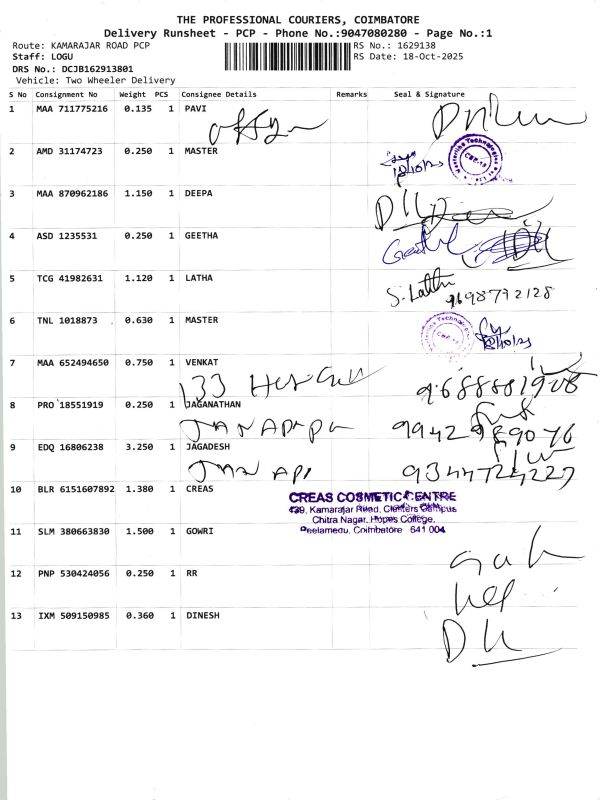 THE PROFESSIONAL COURIERS, COIMBATORE
Delivery Runsheet - PCP - Phone No.:9047080280 - Page No.:1
Route: KAMARAJAR ROAD PCP RS No.: 1629138
Staff: LOGU RS Date: 18-Oct-2025
DRS No.: DCJB162913801
Vehicle: Two Wheeler Delivery
S No Consignment No Weight PCS Consignee Details Remarks Seal & Signature
1 MAA 711775216 0.135 1 PAVI
2 AMD 31174723 0.250 1 MASTER
3 MAA 870962186 1.150 1 DEEPA
4 ASD 1235531 0.250 1 GEETHA
5 TCG 41982631 1.120 1 LATHA
S. Latha
9698772128
6 TNL 1018873 0.630 1 MASTER
7 MAA 652494650 0.750 1 VENKAT
133
8 PRO 18551919 0.250 1 JAGANATHAN
9 EDQ 16806238 3.250 1 JAGADESH
10 BLR 6151607892 1.380 1 CREAS
CREAS COSMETIC CENTRE
439, Kamarajar Road, Clusters Campus
Chitra Nagar, Hopes College,
Peelamedu, Coimbatore 641 004
11 SLM 380663830 1.500 1 GOWRI
12 PNP 530424056 0.250 1 RR
13 IXM 509150985 0.360 1 DINESH